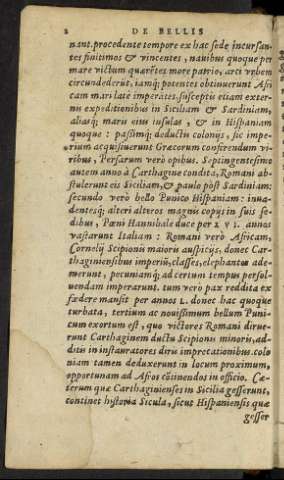 2 DE BELLIS
nant. procedente tempore ex hac sede incursan-
tes finitimos & vincentes, nauibus quoque per
mare victum quærẽtes more patrio, arci vrbem
circundederũt, iamq́; potentes obtinuerunt Afri
cam mari latè imperãtes. susceptis etiam exter-
nis expeditionibus in Siciliam & Sardiniam,
aliasq́; maris eius insulas, & in Hispaniam
quoque: passimq́; deductis colonijs, sic impe-
rium acquisiuerunt Græcorum conferendum vi-
ribus, Persarum verò opibus. Septingentesimo
autem anno à Carthagine condita, Romani ab-
stulerunt eis Siciliam, & paulo pòst Sardiniam:
secundo verò bello Punico Hispaniam: inua-
dentesq́; alteri alteros magnis copijs in suis se-
dibus, Pœni Hannibale duce per XVI. annos
vastarunt Italiam: Romani verò Africam,
Cornelij Scipionis maioris auspicijs, donec Car-
thaginiensibus imperiũ, classes, elephantos ade-
merunt, pecuniamq́; ad certum tempus persol-
uendam imperarunt. tum verò pax reddita ex
fœdere mansit per annos L. donec hac quoque
turbata, tertium ac nouissimum bellum Puni-
cum exortum est, quo victores Romani dirue-
runt Carthaginem ductu Scipionis minoris, ad-
ditis in instauratores diris imprecationibus. colo
niam tamen deduxerunt in locum proximum,
opportunam ad Afros cõtinendos in officio. Cæ-
terum quæ Carthaginienses in Sicilia gesserunt,
continet historia Sicula, sicut Hispaniensis quæ
gesser